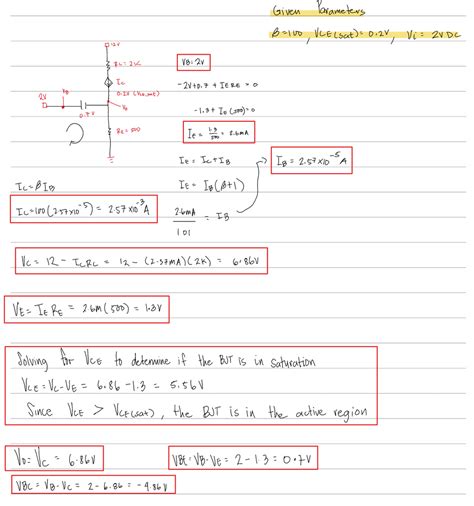 Given Parameters
β=100, VCE(sat) = 0.2V, Vi = 2V DC
12V
RC = 2K
IC
2V
VB
0.7V
RE = 500
VB = 2V
-2V+0.7 + IERE = 0
-1.3 + IE(500) = 0
IE = 1.3/500 = 2.6mA
IE = IC+IB
IE = IB(β+1)
2.6mA/101 = IB
IB = 2.57x10^-5 A
IC = βIB
IC = 100(2.57x10^-5) = 2.57x10^-3 A
VC = 12 - ICRC = 12 - (2.57mA)(2K) = 6.86V
VE = IERE = 2.6m(500) = 1.3V
Solving for VCE to determine if the BJT is in saturation
VCE = VC-VE = 6.86 - 1.3 = 5.56V
Since VCE > VCE(sat), the BJT is in the active region
Vo = VC = 6.86V
VBE = VB-VE = 2 - 1.3 = 0.7V
VBC = VB-VC = 2 - 6.86 = -4.86V